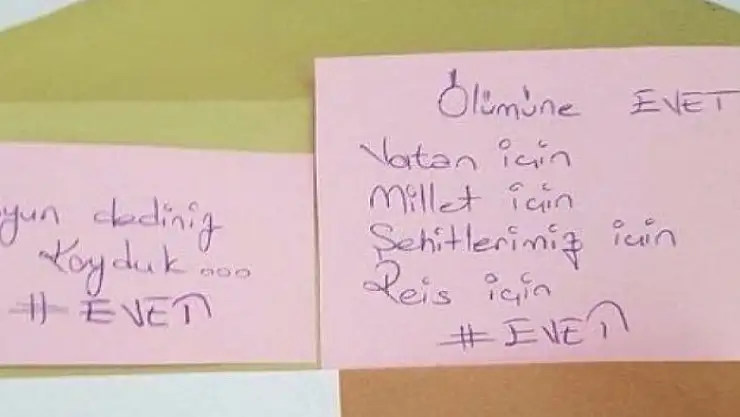 dediniz
Koyduk...
# EVET
Ölümüne EVET
Vatan için
Millet için
Şehitlerimiz için
Reis için
# EVET